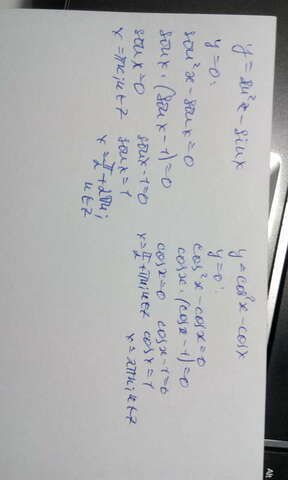 y = sin²x - sinx
y=0:
sin²x - sinx = 0
sinx · (sinx - 1) = 0
sinx = 0 sinx - 1 = 0
x = πk; k∈Z sinx = 1
x = π/2 + 2πk;
k∈Z
y = cos²x - cosx
y=0:
cos²x - cosx = 0
cosx · (cosx - 1) = 0
cosx = 0 cosx - 1 = 0
x = π/2 + πk; k∈Z cosx = 1
x = 2πk; k∈Z
Alt